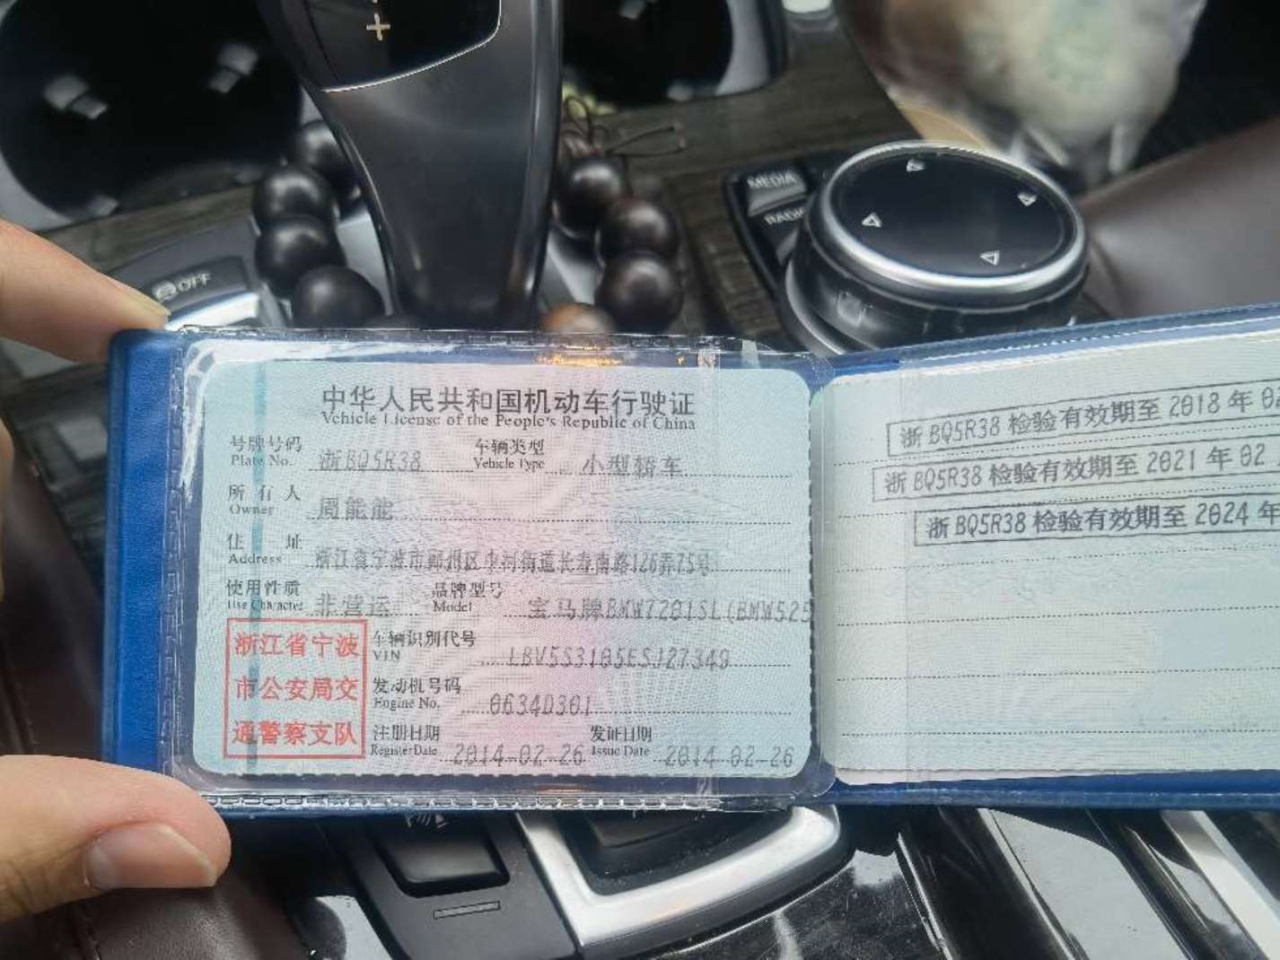 +
MEDIA
RADIO
OFF
中华人民共和国机动车行驶证
Vehicle License of the People's Republic of China
号牌号码 浙BQ5R38 车辆类型 小型轿车
Plate No. Vehicle Type
所有人 周能能
Owner
住址 浙江省宁波市鄞州区中河街道长寿南路126弄75号
Address
使用性质 非营运 品牌型号 宝马牌BMW7201SL(BMW525
Use Character Model
浙江省宁波
市公安局交
通警察支队
车辆识别代号 LBV5S3105ESJ27349
VIN
发动机号码 0634D301
Engine No.
注册日期 2014-02-26 发证日期 2014-02-26
Register Date Issue Date
浙BQ5R38 检验有效期至 2018 年 02
浙BQ5R38 检验有效期至 2021 年 02
浙BQ5R38 检验有效期至 2024 年